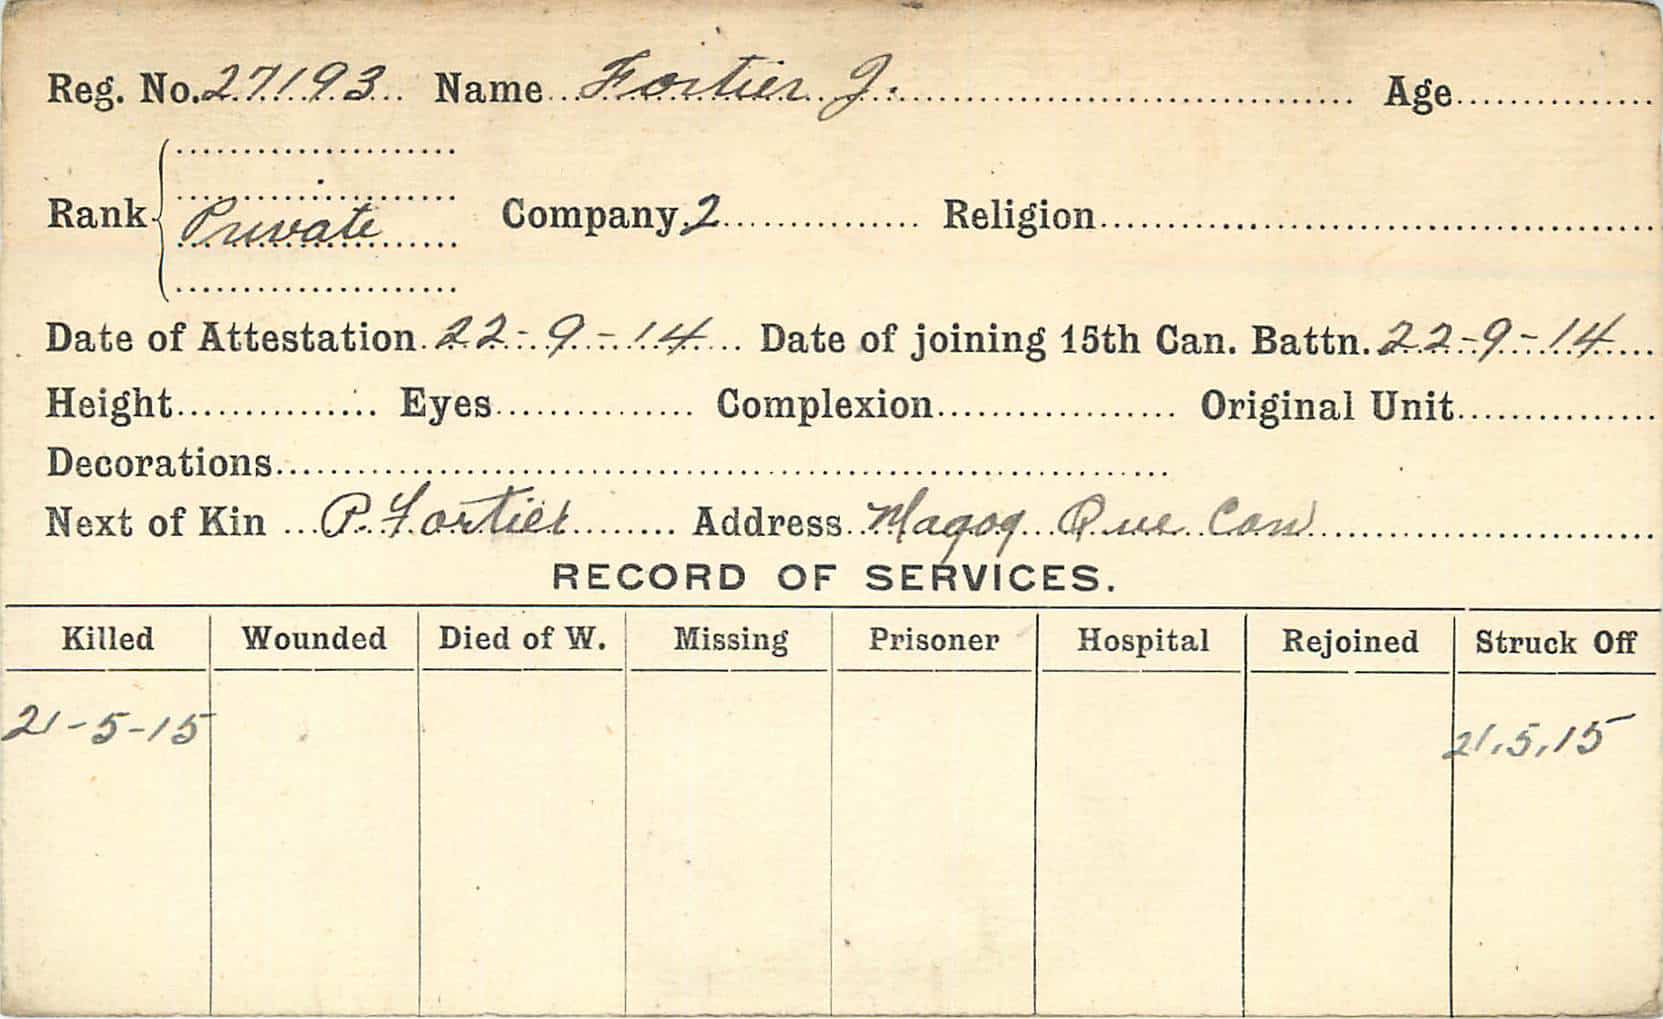 Reg. No. 27193 Name Fortier J. Age
Rank Private Company 2 Religion
Date of Attestation 22-9-14 Date of joining 15th Can. Battn. 22-9-14
Height Eyes Complexion Original Unit
Decorations
Next of Kin P. Fortier Address Magog Que Can
RECORD OF SERVICES.
Killed Wounded Died of W. Missing Prisoner Hospital Rejoined Struck Off
21-5-15 21.5.15